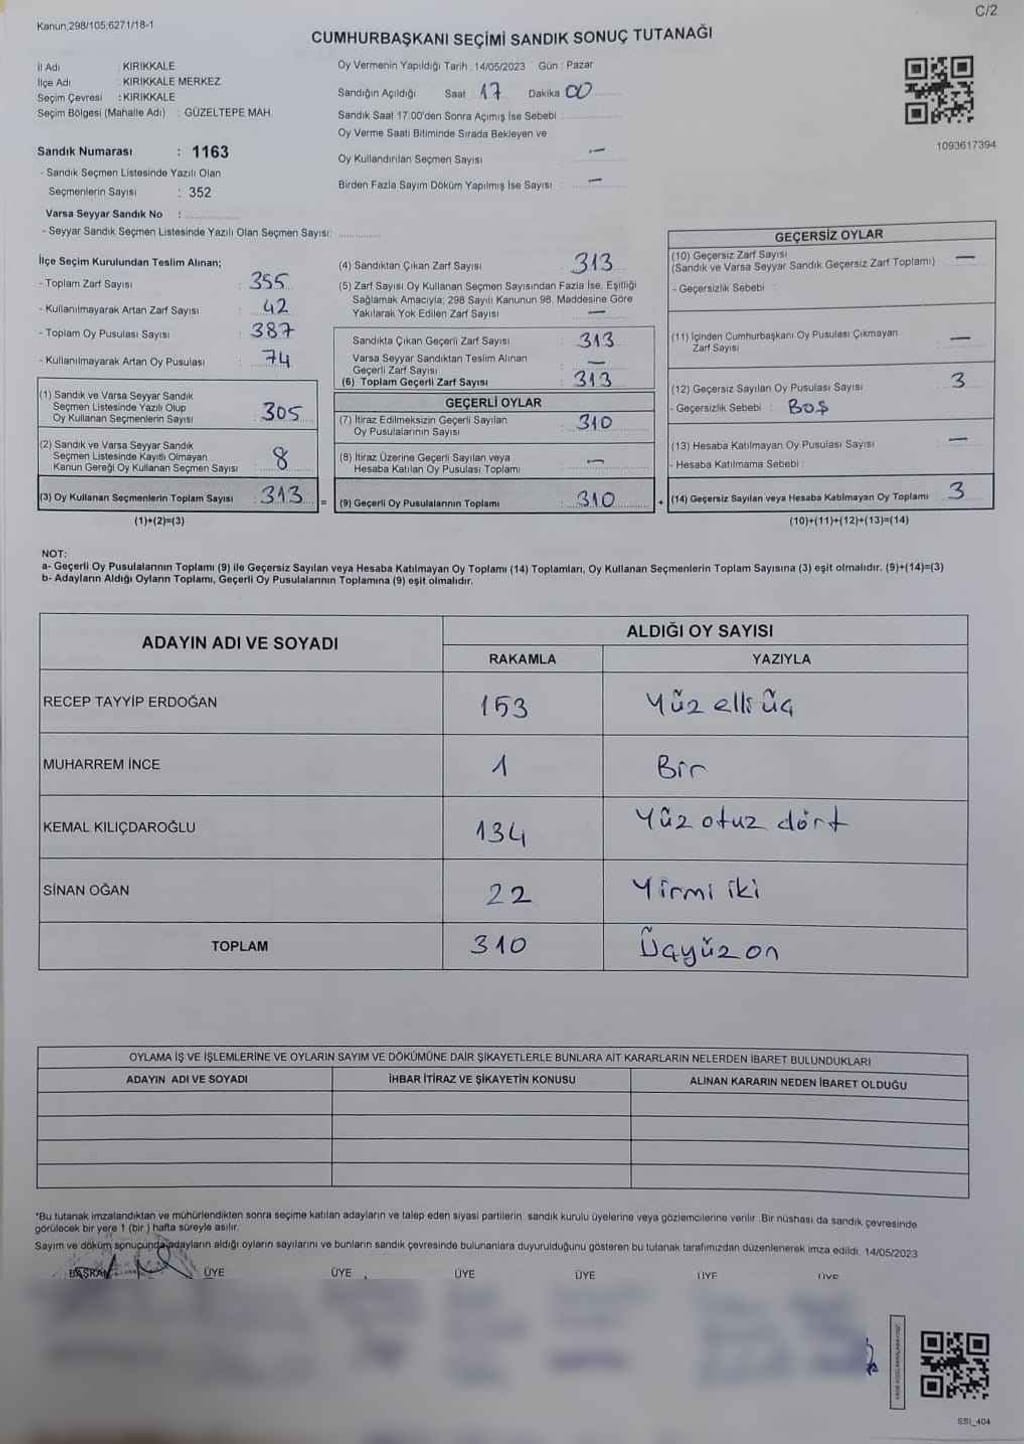 C/2
Kanun,298/105,6271/18-1
CUMHURBAŞKANI SEÇİMİ SANDIK SONUÇ TUTANAĞI
İl Adı : KIRIKKALE
İlçe Adı : KIRIKKALE MERKEZ
Seçim Çevresi : KIRIKKALE
Seçim Bölgesi (Mahalle Adı) : GÜZELTEPE MAH.
Sandık Numarası : 1163
- Sandık Seçmen Listesinde Yazılı Olan
Seçmenlerin Sayısı : 352
Varsa Seyyar Sandık No :
- Seyyar Sandık Seçmen Listesinde Yazılı Olan Seçmen Sayısı:
Oy Vermenin Yapıldığı Tarih : 14/05/2023 Gün : Pazar
Sandığın Açıldığı Saat 17 Dakika 00
Sandık Saat 17.00'den Sonra Açımış İse Sebebi :
Oy Verme Saati Bitiminde Sırada Bekleyen ve
Oy Kullandırılan Seçmen Sayısı —
Birden Fazla Sayım Döküm Yapılmış İse Sayısı : —
1093617394
İlçe Seçim Kurulundan Teslim Alınan;
- Toplam Zarf Sayısı : 355
- Kullanılmayarak Artan Zarf Sayısı : 42
- Toplam Oy Pusulası Sayısı : 387
- Kullanılmayarak Artan Oy Pusulası : 74
(1) Sandık ve Varsa Seyyar Sandık
Seçmen Listesinde Yazılı Olup
Oy Kullanan Seçmenlerin Sayısı : 305
(2) Sandık ve Varsa Seyyar Sandık
Seçmen Listesinde Kayıtlı Olmayan
Kanun Gereği Oy Kullanan Seçmen Sayısı : 8
(3) Oy Kullanan Seçmenlerin Toplam Sayısı : 313 =
(1)+(2)=(3)
(4) Sandıktan Çıkan Zarf Sayısı : 313
(5) Zarf Sayısı Oy Kullanan Seçmen Sayısından Fazla İse, Eşitliği
Sağlamak Amacıyla; 298 Sayılı Kanunun 98. Maddesine Göre
Yakılarak Yok Edilen Zarf Sayısı —
Sandıkta Çıkan Geçerli Zarf Sayısı : 313
Varsa Seyyar Sandıktan Teslim Alınan
Geçerli Zarf Sayısı —
(6) Toplam Geçerli Zarf Sayısı : 313
GEÇERLİ OYLAR
(7) İtiraz Edilmeksizin Geçerli Sayılan
Oy Pusulalarının Sayısı : 310
(8) İtiraz Üzerine Geçerli Sayılan veya
Hesaba Katılan Oy Pusulası Toplamı : —
(9) Geçerli Oy Pusulalarının Toplamı : 310 +
GEÇERSİZ OYLAR
(10) Geçersiz Zarf Sayısı
(Sandık ve Varsa Seyyar Sandık Geçersiz Zarf Toplamı) —
- Geçersizlik Sebebi :
(11) İçinden Cumhurbaşkanı Oy Pusulası Çıkmayan
Zarf Sayısı —
(12) Geçersiz Sayılan Oy Pusulası Sayısı 3
- Geçersizlik Sebebi : BOŞ
(13) Hesaba Katılmayan Oy Pusulası Sayısı —
- Hesaba Katılmama Sebebi :
(14) Geçersiz Sayılan veya Hesaba Katılmayan Oy Toplamı 3
(10)+(11)+(12)+(13)=(14)
NOT:
a- Geçerli Oy Pusulalarının Toplamı (9) ile Geçersiz Sayılan veya Hesaba Katılmayan Oy Toplamı (14) Toplamları, Oy Kullanan Seçmenlerin Toplam Sayısına (3) eşit olmalıdır. (9)+(14)=(3)
b- Adayların Aldığı Oyların Toplamı, Geçerli Oy Pusulalarının Toplamına (9) eşit olmalıdır.
ADAYIN ADI VE SOYADI
ALDIĞI OY SAYISI
RAKAMLA YAZIYLA
RECEP TAYYİP ERDOĞAN 153 Yüz elli üç
MUHARREM İNCE 1 Bir
KEMAL KILIÇDAROĞLU 134 Yüz otuz dört
SİNAN OĞAN 22 Yirmi iki
TOPLAM 310 Üçyüz on
OYLAMA İŞ VE İŞLEMLERİNE VE OYLARIN SAYIM VE DÖKÜMÜNE DAİR ŞİKAYETLERLE BUNLARA AİT KARARLARIN NELERDEN İBARET BULUNDUKLARI
ADAYIN ADI VE SOYADI İHBAR İTİRAZ VE ŞİKAYETİN KONUSU ALINAN KARARIN NEDEN İBARET OLDUĞU
*Bu tutanak imzalandıktan ve mühürlendikten sonra seçime katılan adayların ve talep eden siyasi partilerin, sandık kurulu üyelerine veya gözlemcilerine verilir. Bir nüshası da sandık çevresinde
görülecek bir yere 1 (bir ) hafta süreyle asılır.
Sayım ve döküm sonucunda adayların aldığı oyların sayılarını ve bunların sandık çevresinde bulunanlara duyurulduğunu gösteren bu tutanak tarafımızdan düzenlenerek imza edildi. 14/05/2023
BAŞKAN ÜYE ÜYE ÜYE ÜYE ÜYE ÜYE
SSI_404